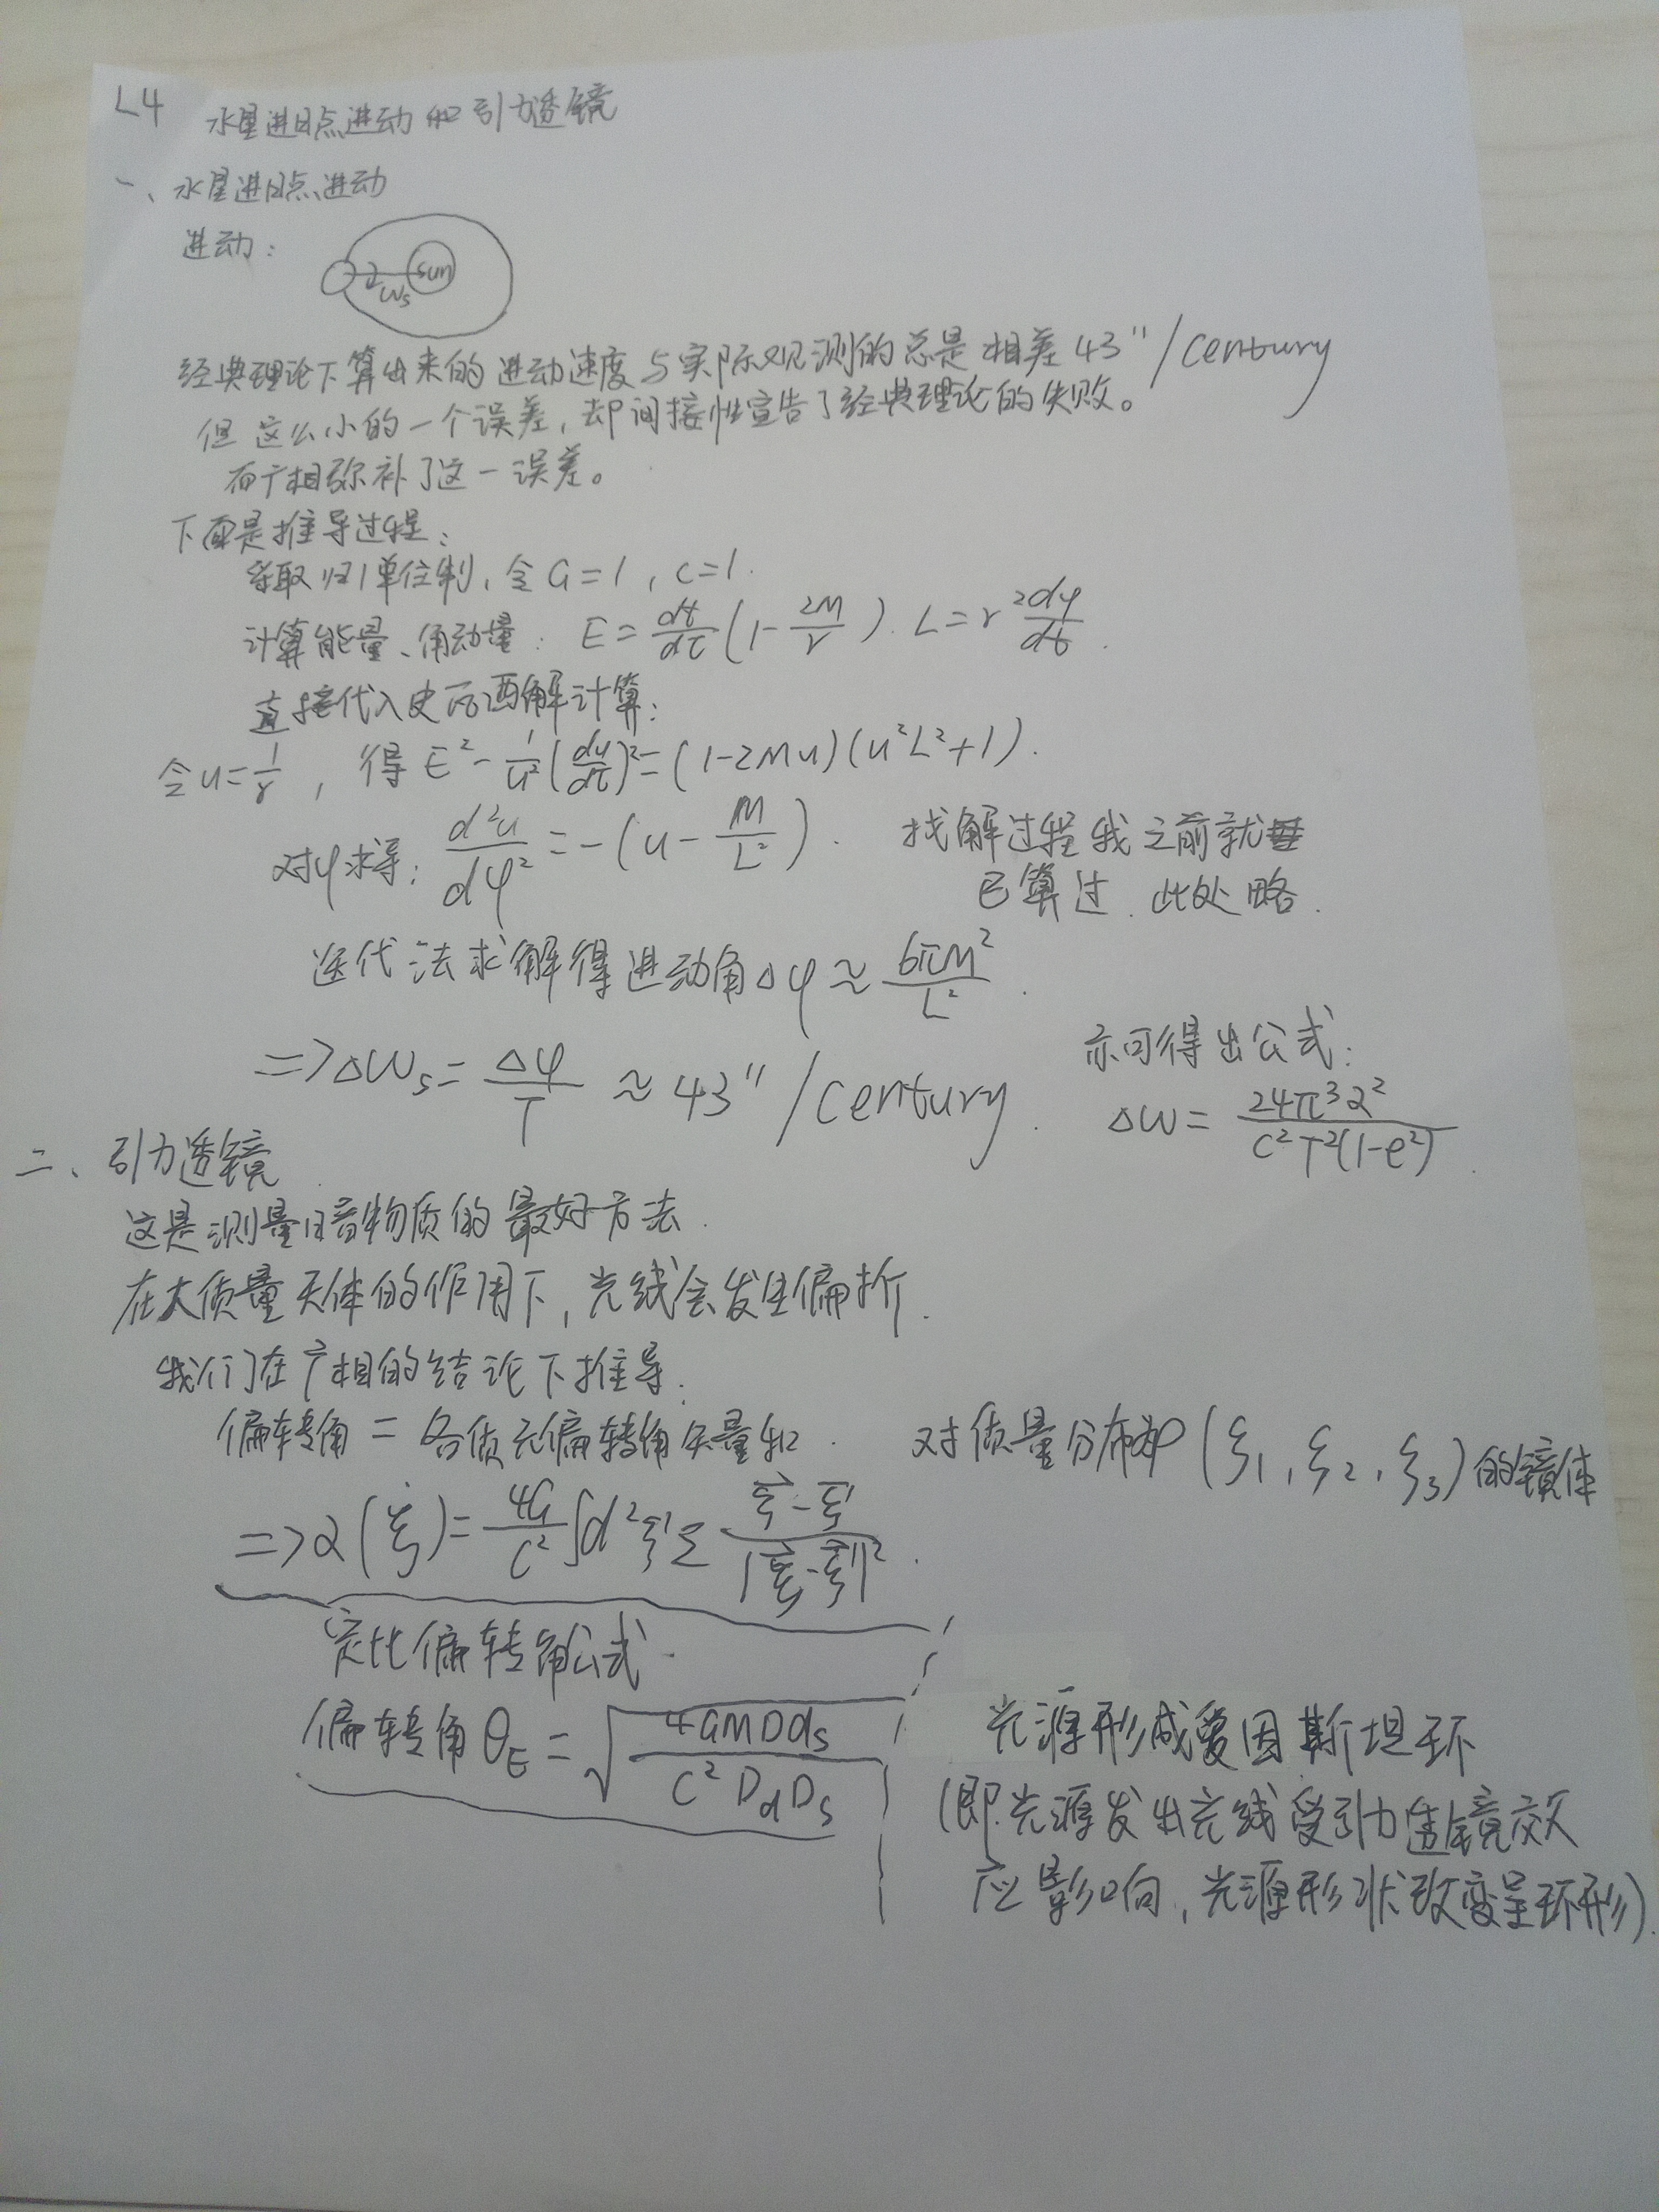 L4 水星进日点进动和引力透镜
一、水星进日点进动
进动：
sun
Ws
经典理论下算出来的进动速度与实际观测的总是相差43"/century
但这么小的一个误差，却间接性宣告了经典理论的失败。
而广相弥补了这一误差。
下面是推导过程：
采取归1单位制，令G=1，c=1.
计算能量、角动量：E=dt/dτ(1-2M/r). L=r²dφ/dt.
直接代入史瓦西解计算：
令u=1/r，得E²-1/u²(du/dτ)²=(1-2Mu)(u²L²+1).
对φ求导：d²u/dφ²=-(u-M/L²).
找解过程我之前就
已算过.此处略.
迭代法求解得进动角Δφ≈6πM²/L².
=>ΔWs=Δφ/T≈43"/century.
亦可得出公式：
ΔW=24π³a²/c²T²(1-e²).
二、引力透镜
这是测量暗物质的最好方法.
在大质量天体的作用下，光线会发生偏折.
我们在广相的结论下推导.
偏转角=各质元偏转角矢量和.
对质量分布为ρ(ξ1,ξ2,ξ3)的镜体
=>α(ξ)=4G/c²∫d²ξ'Σ(ξ-ξ')/|ξ-ξ'|².
定比偏转角公式.
偏转角θE=√(4GMDds/c²DdDs)
光源形成爱因斯坦环
(即光源发出光线受引力透镜效
应影响，光源形状改变呈环形).